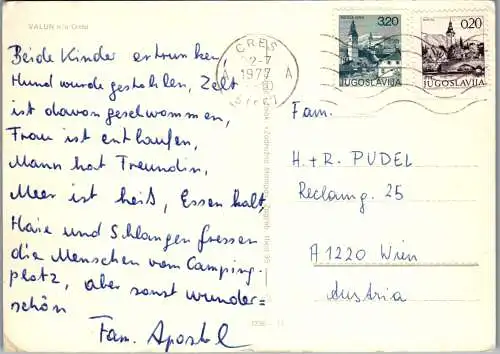 VALUN
Beide Kinder ertrunken,
Hund wurde gestohlen, Zelt
ist davongeschwommen,
Frau ist entlaufen,
Mann hat Freundin,
Meer ist heiß, Essen kalt,
Haie und Schlangen fressen
die Menschen vom Camping-
platz, aber sonst wunder=
schön
Fam. Apostel
CRES
2-7
1977
A
3,20
JUGOSLAVIJA
0,20
JUGOSLAVIJA
Fam.
H. + R. PUDEL
Reclamg. 25
A 1220 Wien
Austria